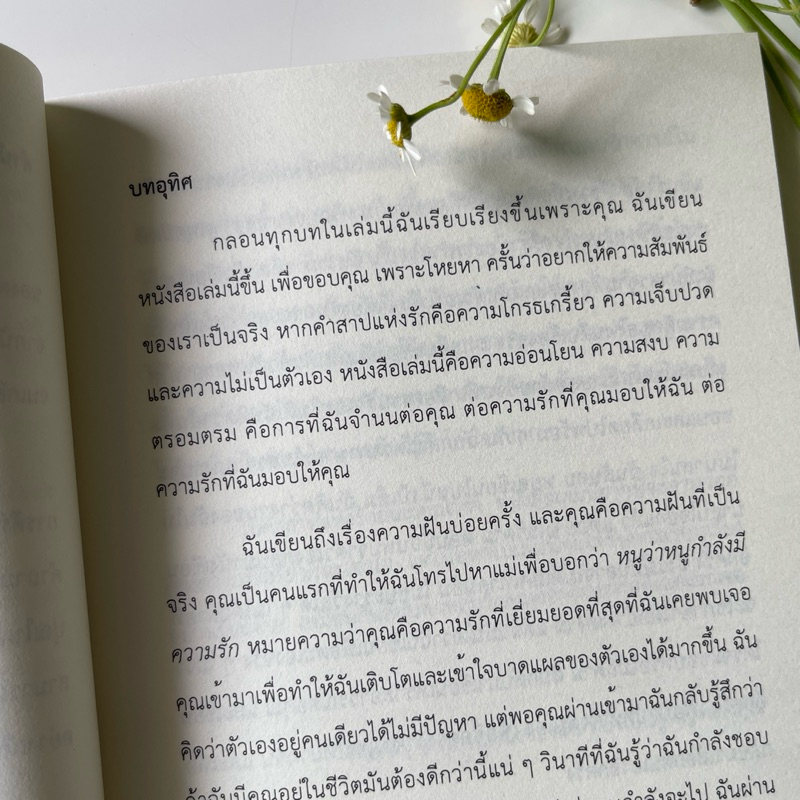 บทอุทิศ
กลอนทุกบทในเล่มนี้ฉันเรียบเรียงขึ้นเพราะคุณ ฉันเขียน
หนังสือเล่มนี้ขึ้น เพื่อขอบคุณ เพราะโหยหา ครั้นว่าอยากให้ความสัมพันธ์
ของเราเป็นจริง หากคำสาปแห่งรักคือความโกรธเกรี้ยว ความเจ็บปวด
และความไม่เป็นตัวเอง หนังสือเล่มนี้คือความอ่อนโยน ความสงบ ความ
ตรอมตรม คือการที่ฉันจำนนต่อคุณ ต่อความรักที่คุณมอบให้ฉัน ต่อ
ความรักที่ฉันมอบให้คุณ
ฉันเขียนถึงเรื่องความฝันบ่อยครั้ง และคุณคือความฝันที่เป็น
จริง คุณเป็นคนแรกที่ทำให้ฉันโทรไปหาแม่เพื่อบอกว่า หนูว่าหนูกำลังมี
ความรัก หมายความว่าคุณคือความรักที่เยี่ยมยอดที่สุดที่ฉันเคยพบเจอ
คุณเข้ามาเพื่อทำให้ฉันเติบโตและเข้าใจบาดแผลของตัวเองได้มากขึ้น ฉัน
คิดว่าตัวเองอยู่คนเดียวได้ไม่มีปัญหา แต่พอคุณผ่านเข้ามาฉันกลับรู้สึกว่า
ถ้าฉันมีคุณอยู่ในชีวิตมันต้องดีกว่านี้แน่ ๆ วินาทีที่ฉันรู้ว่าฉันกำลังชอบ
กำลังจะไป ฉันผ่าน